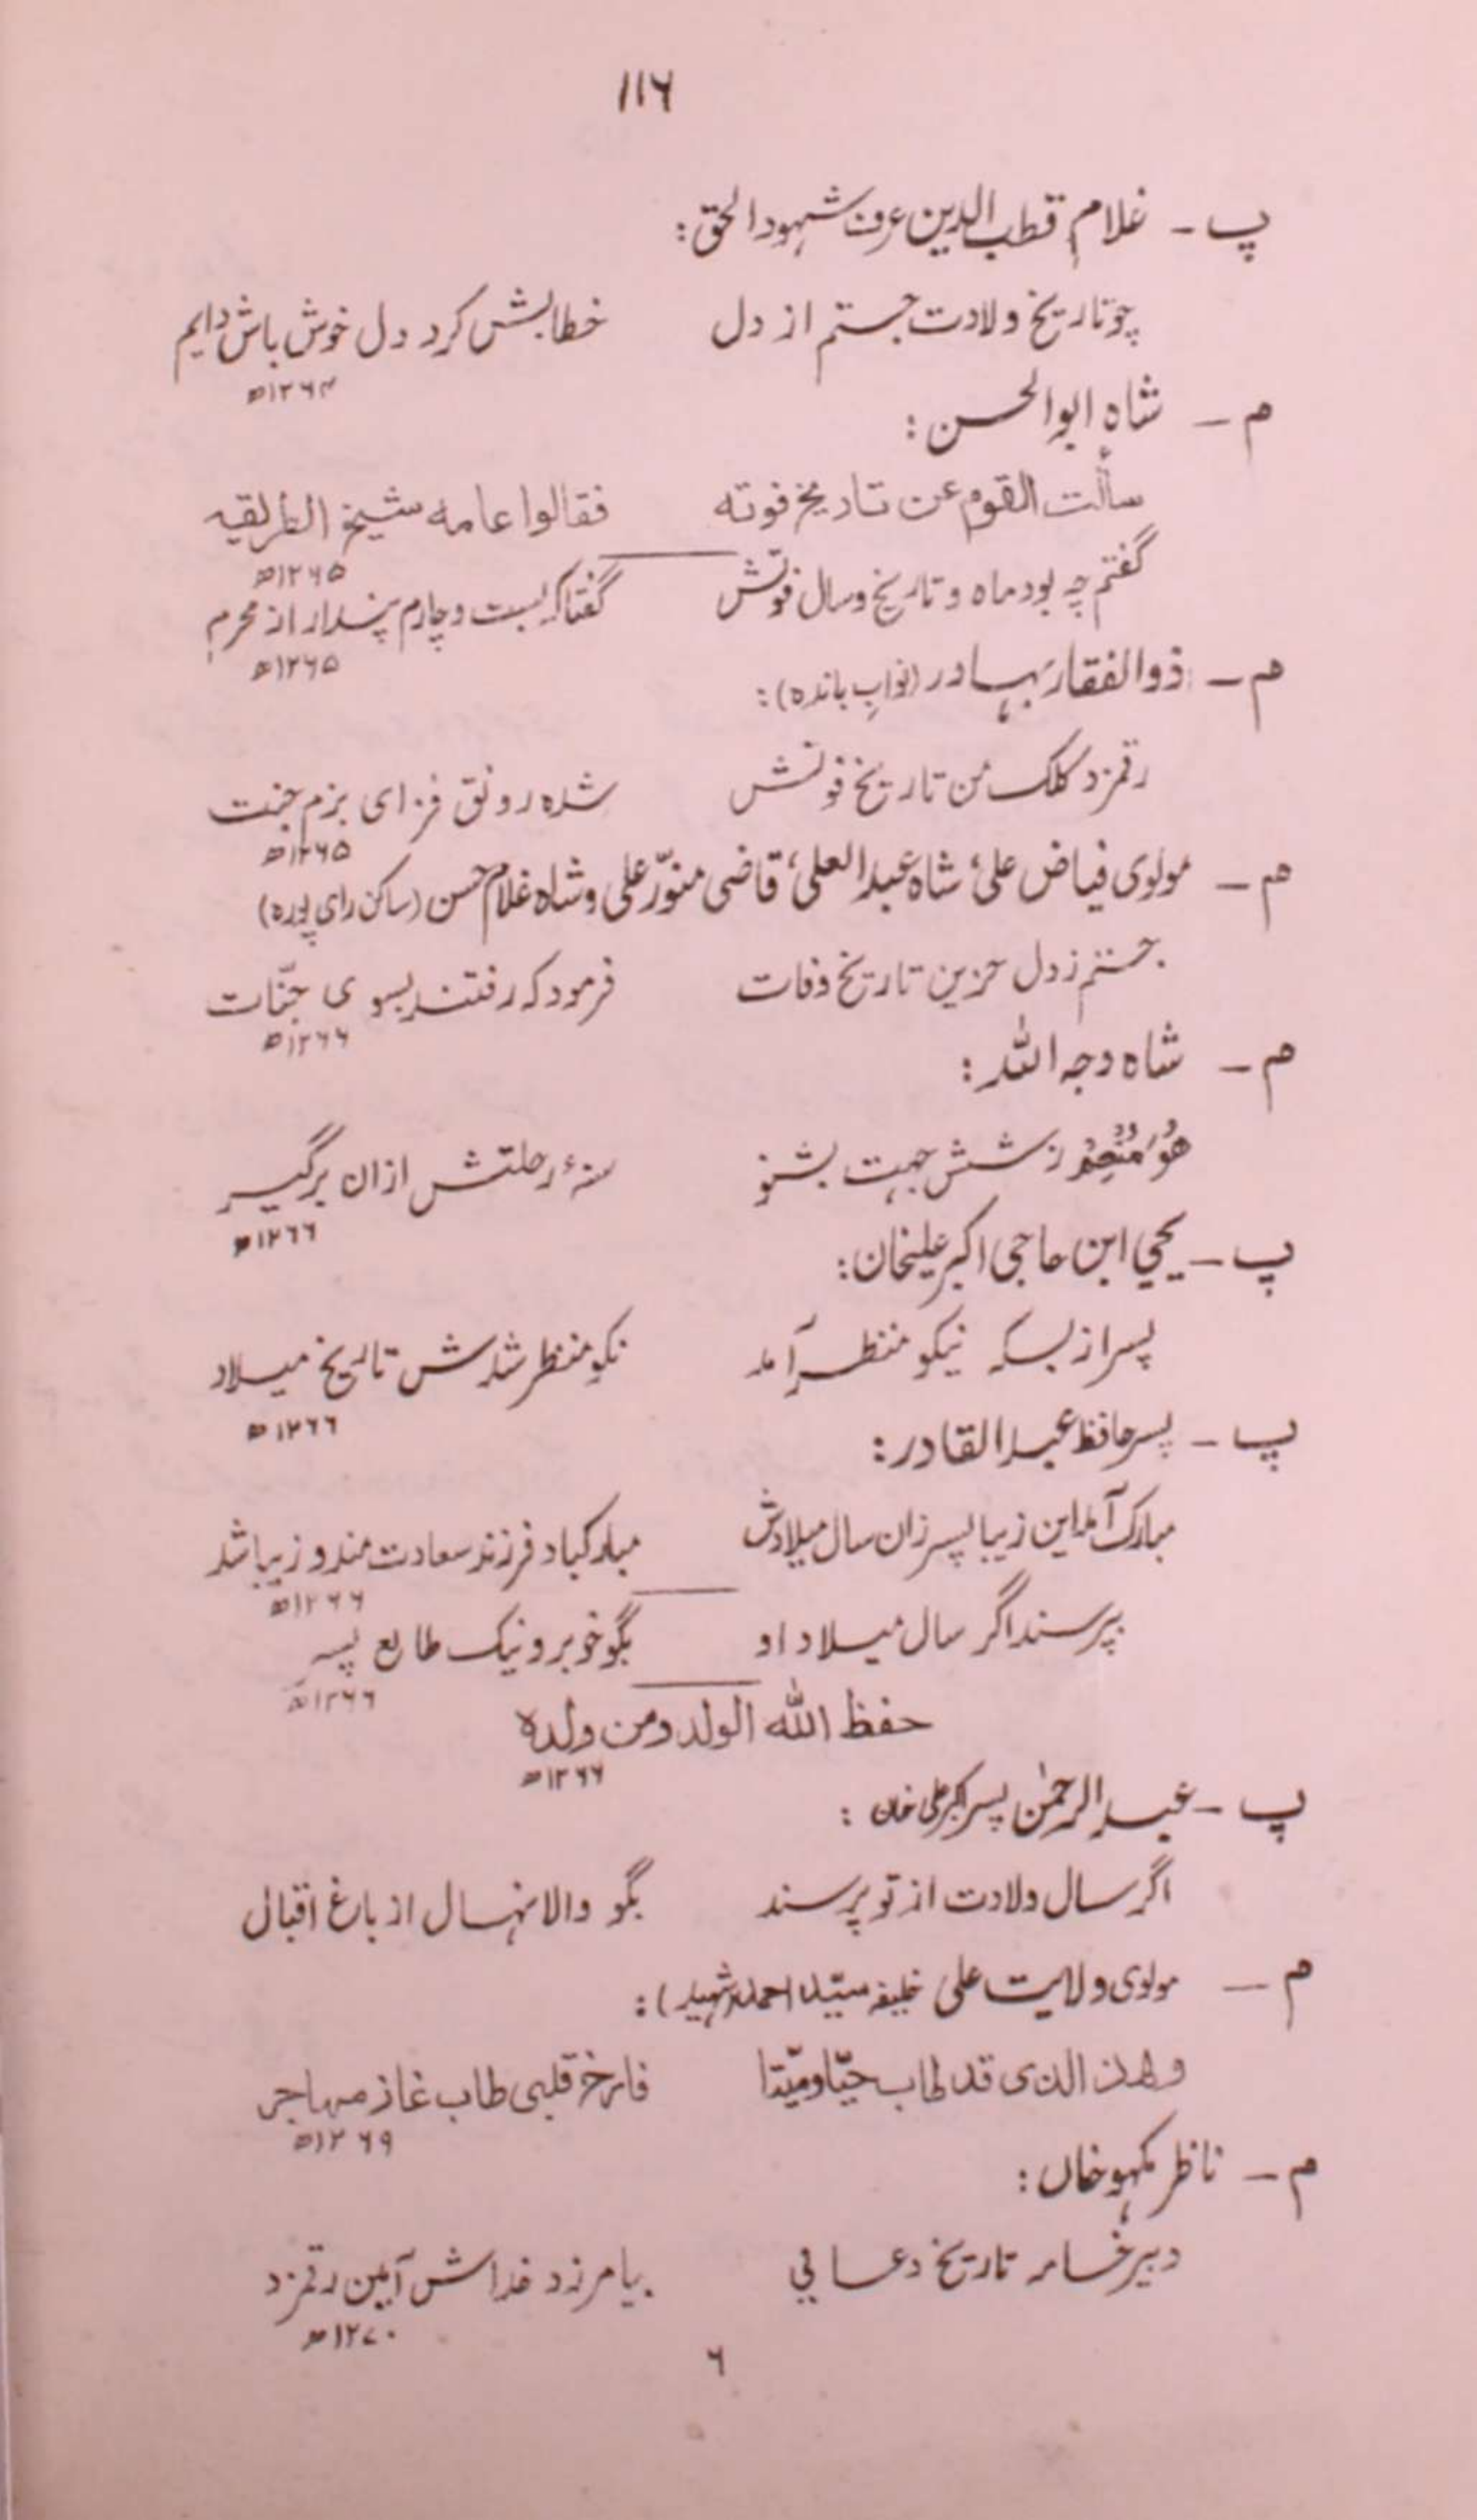 ۱۱۶
پ - غلام قطب الدین عرف شہود الحق :
چو تاریخ ولادت جستم از دل خطابش کرد دل خوش باش دایم
۱۲۶۴ھ
م - شاہ ابوالحسن :
سألت القوم عن تاریخ فوته فقالوا عامه شیخ الطریقیه
۱۲۶۵ھ
گفتم چہ بود ماہ و تاریخ و سال فوتش گفتا کہ بست و چارم پندار از محرم
۱۲۶۵ھ
م - ذوالفقار بہادر (نوابِ باندہ) :
رقمزد کلک من تاریخ فوتش شدہ رونق فزای بزم جنت
۱۲۶۵ھ
م - مولوی فیاض علی، شاہ عبد العلی، قاضی منوّر علی و شاہ غلام حسن (ساکن رای پورہ)
جستم ز دل حزین تاریخ وفات فرمود کہ رفتند بسوی جنّات
۱۲۶۶ھ
م - شاہ وجہ اللہ :
هُوَ مُنْعِمُ ز شش جہت بشنو سنۂ رحلتش ازان برگیر
۱۲۶۶ھ
پ - یحیی ابن حاجی اکبر علیخان :
پسر از بسکہ نیکو منظر آمد نکو منظر شدش تاریخ میلاد
۱۲۶۶ھ
پ - پسر حافظ عبد القادر :
مبارک آمد این زیبا پسر زان سال میلادش مبارکباد فرزند سعادت مند و زیبا شد
۱۲۶۶ھ
بپرسند اگر سال میلاد او بگو خوبرو نیک طالع پسر
۱۲۶۶ھ
حفظ الله الولد ومن ولده
۱۲۶۶ھ
پ - عبد الرحمٰن پسر اکبر علی خان :
اگر سال ولادت از تو پرسند بگو والا نہال از باغ اقبال
م - مولوی ولایت علی خلیفہ سیّد احمد شہید) :
وهذا الذی قد طاب حیّا ومیّتا فارخ قلبی طاب غاز مهاجر
۱۲۶۹ھ
م - ناظر مکہو خاں :
دبیر خامہ تاریخ دعایی بیامرزد خداش آمین رقمزد
۱۲۷۰ھ
۶